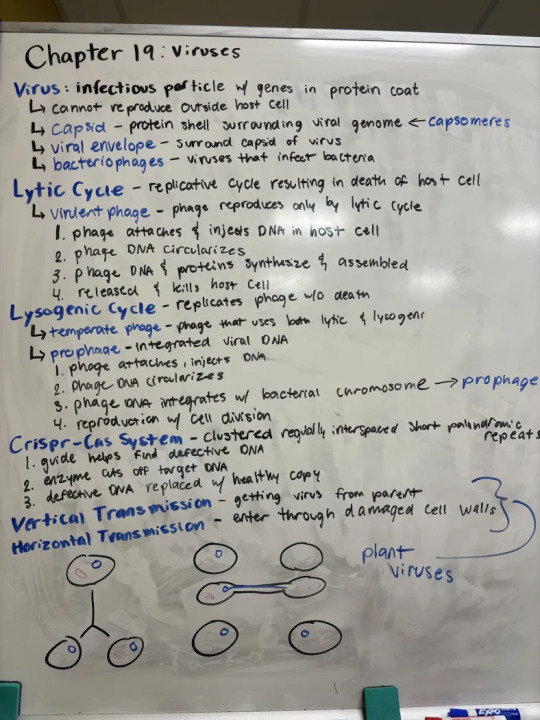 Chapter 19: Viruses
Virus: infectious particle w/ genes in protein coat
↳ cannot reproduce outside host cell
↳ capsid - protein shell surrounding viral genome ← capsomeres
↳ viral envelope - surround capsid of virus
↳ bacteriophages - viruses that infect bacteria
Lytic Cycle - replicative cycle resulting in death of host cell
↳ virulent phage - phage reproduces only by lytic cycle
1. phage attaches & injects DNA in host cell
2. phage DNA circularizes
3. phage DNA & proteins synthesize & assembled
4. released & kills host cell
Lysogenic Cycle - replicates phage w/o death
↳ temperate phage - phage that uses both lytic & lysogeni
↳ prophage - integrated viral DNA
1. phage attaches, injects DNA
2. phage DNA circularizes
3. phage DNA integrates w/ bacterial chromosome → prophage
4. reproduction w/ cell division
Crispr-Cas System - clustered regually interspaced short palindromic
repeats
1. guide helps find defective DNA
2. enzyme cuts off target DNA
3. defective DNA replaced w/ healthy copy
Vertical Transmission - getting virus from parent
Horizontal Transmission - enter through damaged cell walls
plant
viruses
EXPO